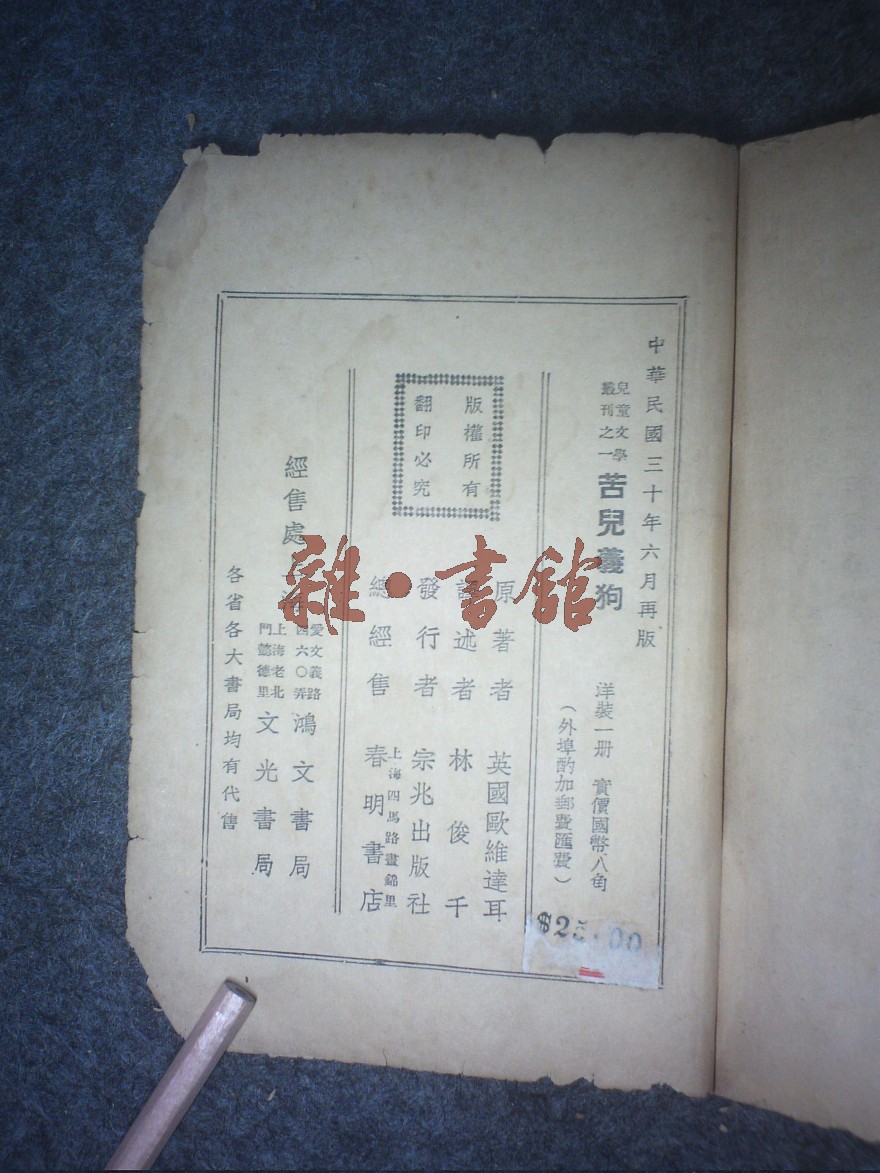 中華民國三十年六月再版
兒童文學
叢刊之一
苦兒義狗
洋裝一册 實價國幣八角
（外埠酌加郵費匯費）
$25.00
版權所有
翻印必究
原著者 英國歐維達耳
述者 林俊千
發行者 宗兆出版社
總經售 上海四馬路晝錦里 春明書店
經售處
愛文義路
四六〇弄
鴻文書局
上海老北
門懿德里
文光書局
各省各大書局均有代售
雜·書館